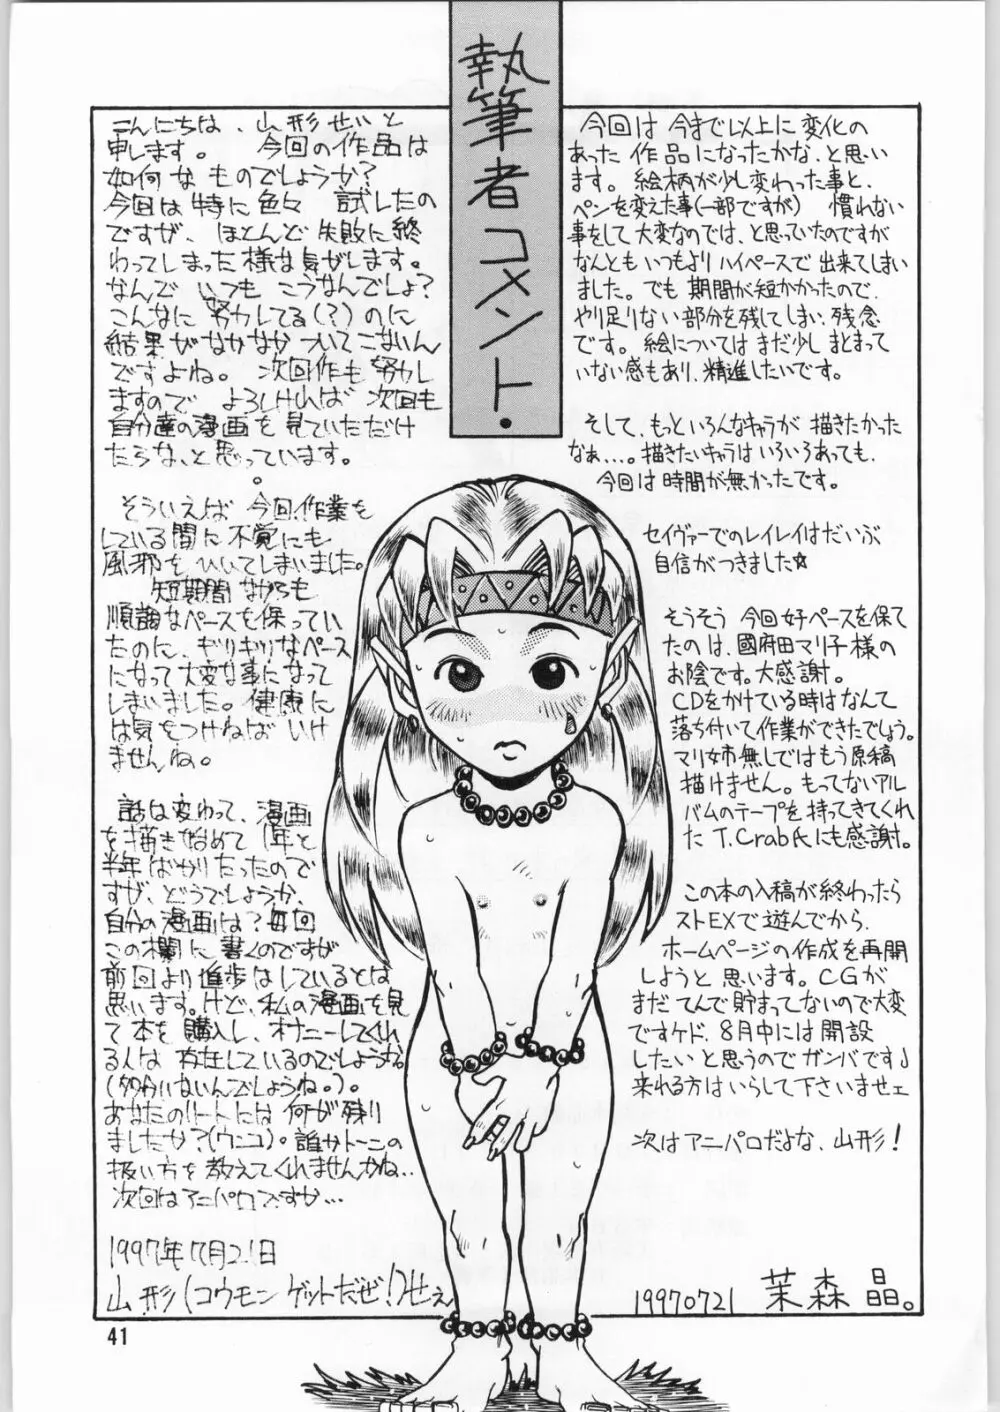 執筆者コメント・
こんにちは、山形せいと
申します。 今回の作品は
如何なものでしょうか?
今回は特に色々 試したの
ですが、ほとんど失敗に終
わってしまった様な気がします。
なんで いつも こうなんでしょ?
こんなに努力してる(?)のに
結果がなかなか ついてこないん
ですよね。 次回作も努力し
ますので よろしければ 次回も
自分達の漫画を見ていただけ
たらな、と思っています。
そういえば 今回、作業を
している間に不覚にも
風邪をひいてしまいました。
短期間ながらも
順調なペースを保ってい
たのに、ギリギリなペース
になって大変な事になって
しまいました。健康に
は気をつけねば いけ
ませんね。
話は変わって、漫画
を描き始めて 1年と
半年ばかりたったので
すが、どうでしょうか、
自分の漫画は?毎回
この欄に書くのですが
前回より進歩はしているとは
思います。けど、私の漫画を見
て本を購入し、オナニーしてくれ
る人は存在しているのでしょうか
(多分いないんでしょうね。)。
あなたのハートには何が残り
ましたか?(ウニコ)。誰かトーンの
扱い方を教えてくれませんかね…
次回はアニパロですか…
1997年7月21日
山形(コウモン ゲットだぜ!)せい
今回は今まで以上に変化の
あった作品になったかな、と思い
ます。絵柄が少し変わった事と、
ペンを変えた事(一部ですが) 慣れない
事をして大変なのでは、と思っていたのですが
なんともいつもよりハイペースで出来てしまい
ました。でも期間が短かかったので、
やり足りない部分を残してしまい、残念
です。絵についてはまだ少しまとまって
いない感もあり、精進したいです。
そして、もっといろんなキャラが描きたかった
なぁ…。描きたいキャラはいろいろあっても、
今回は時間が無かったです。
セイヴァーでのレイレイはだいぶ
自信がつきました☆
そうそう 今回好ペースを保て
たのは、國府田マリ子様の
お陰です。大感謝。
CDをかけている時はなんて
落ち付いて作業ができたでしょう。
マリ姉無しではもう原稿
描けません。もってないアル
バムのテープを持ってきてくれ
た T.Crab氏にも感謝。
この本の入稿が終わったら
ストEXで遊んでから、
ホームページの作成を再開
しようと思います。CGが
まだてんで貯まってないので大変
ですケド、8月中には開設
したいと思うのでガンバです♩
来れる方はいらして下さいませェ
次はアニパロだよな、山形!
19970721 茉森 晶。
41